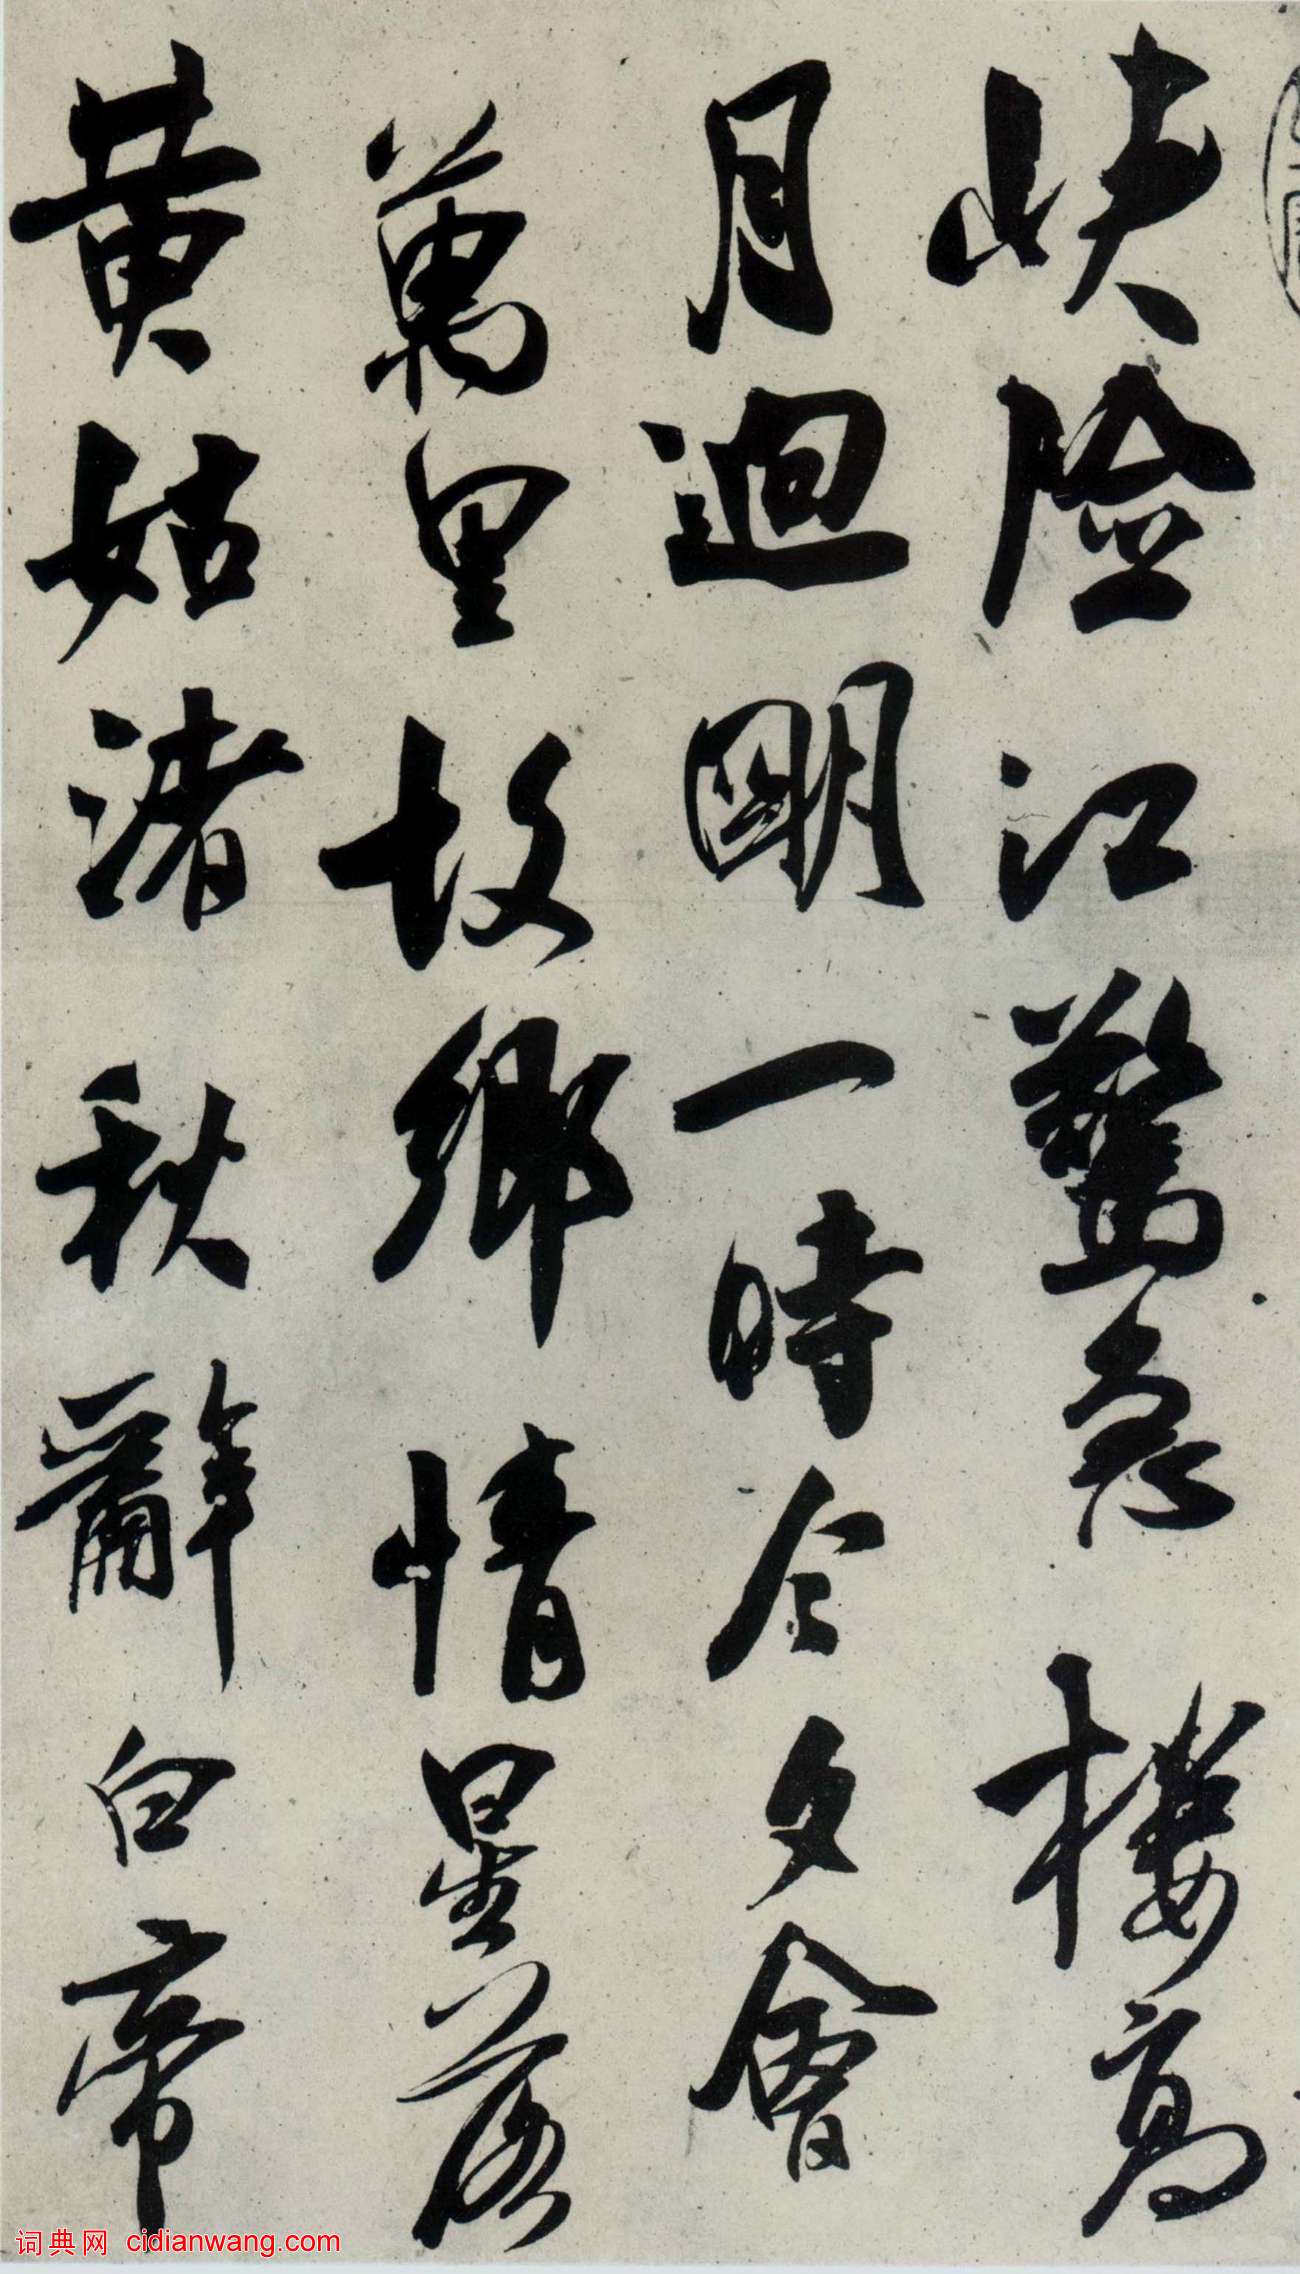 峽險江驚急樓高
月迥明一時今夕會
萬里故鄉情星落
黃姑渚秋辭白帝
词典网 cidianwang.com